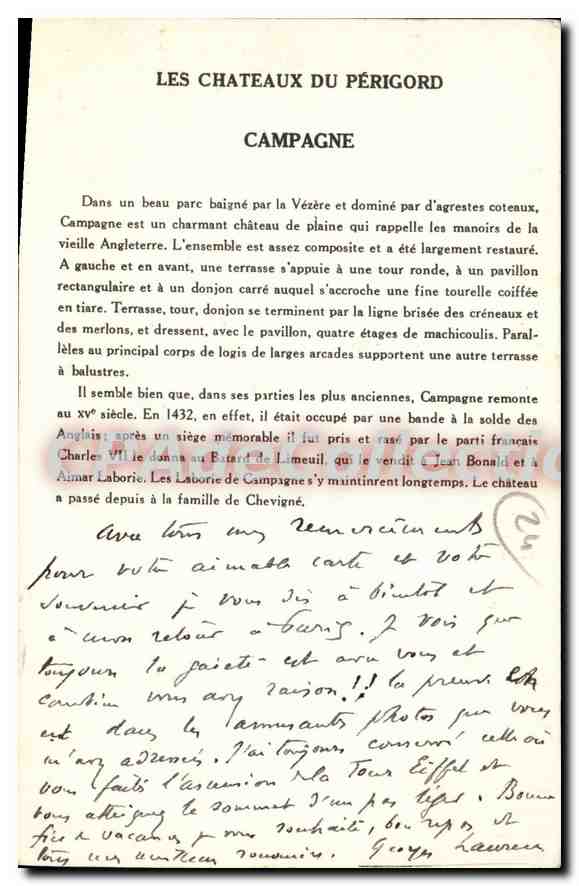 LES CHATEAUX DU PÉRIGORD
CAMPAGNE
Dans un beau parc baigné par la Vézère et dominé par d'agrestes coteaux,
Campagne est un charmant château de plaine qui rappelle les manoirs de la
vieille Angleterre. L'ensemble est assez composite et a été largement restauré.
A gauche et en avant, une terrasse s'appuie à une tour ronde, à un pavillon
rectangulaire et à un donjon carré auquel s'accroche une fine tourelle coiffée
en tiare. Terrasse, tour, donjon se terminent par la ligne brisée des créneaux et
des merlons, et dressent, avec le pavillon, quatre étages de machicoulis. Paral-
lèles au principal corps de logis de larges arcades supportent une autre terrasse
à balustres.
Il semble bien que, dans ses parties les plus anciennes, Campagne remonte
au XVe siècle. En 1432, en effet, il était occupé par une bande à la solde des
Anglais; après un siège mémorable il fut pris et rasé par le parti français
Charles VII le donna au Batard de Limeuil, qui le vendit à Jean Bonald et à
Aimar Laborie. Les Laborie de Campagne s'y maintinrent longtemps. Le château
a passé depuis à la famille de Chevigné.
24
Avec tous mes remerciements
pour votre aimable carte et votre
souvenir je vous dis à bientot et
à mon retour à Paris. Je vois que
toujours la gaieté est avec vous et
combien vous avez raison!! la preuve
est dans les amusants photos que vous
m'avez adressés. J'ai toujours conservé celle où
vous faites l'ascension de la Tour Eiffel et
vous atteignez le sommet d'un pas léger. Bonne
fin de vacances je vous souhaite, bon repos et
tous mes meilleurs souvenirs. Georges